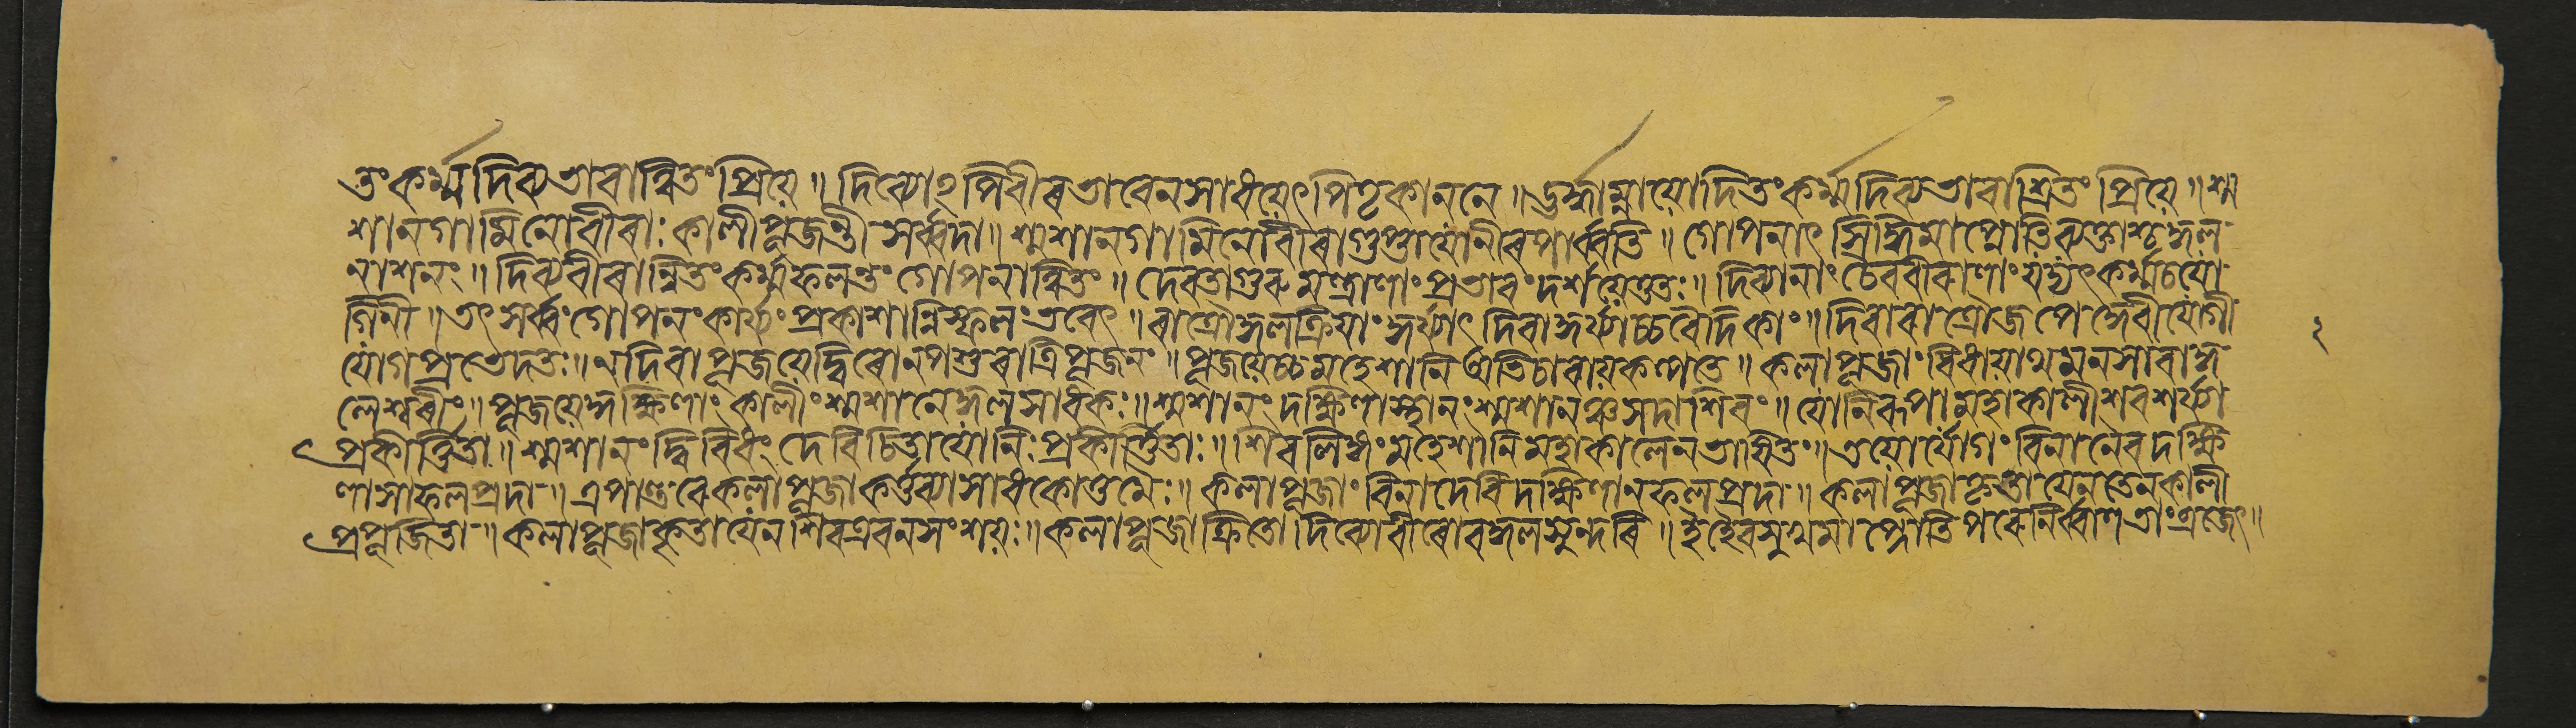 তং কর্ম্ম দিব্যভাবান্বিতং প্রিয়ে ॥ দিব্যোঽপি বীৰভাবেন সাধয়েৎ পিতৃকাননে ॥ ঊর্দ্ধাম্নায়োদিতং কর্ম্ম দিব্যভাবাশ্রিতং প্রিয়ে ॥ শ্ম
শানগামিনো বীৰাঃ কালীপূজন্তী সর্ব্বদা ॥ শ্মশানগামিনো বীৰা গুপ্তা যোনীৰ পার্ব্বতি ॥ গোপনাৎ সিদ্ধিমাপ্নোতি ব্যক্তাশ্চ কুল
নাশনং ॥ দিব্যবীৰান্বিতং কর্ম্ম ফলন্তং গোপনান্বিতং ॥ দেবতাগুৰুমন্ত্রাণাং প্রভাবং দর্শয়েত্ততঃ ॥ দিব্যানাং চৈব বীৰাণাং যদ্যৎ কর্ম্ম চ যো
গিনী ॥ তৎ সর্ব্বং গোপনং কার্য্যং প্রকাশান্নিস্ফলং ভবেৎ ॥ ৰাত্রৌ কুলক্রিয়াং কুর্য্যাৎ দিবা কুর্য্যাচ্চ বৈদিকাং ॥ দিবাৰাত্রৌ জপেদ্দেবী যোগী
যোগপ্রভেদতঃ ॥ ন দিবা পূজয়েদ্বিৰো ন পশু ৰাত্রিপূজনং ॥ পূজয়েচ্চ মহেশানি অভিচাৰায় কল্পতে ॥ কলাপূজাং বিধায়াথ মনসা বা কু
লেশ্বৰীং ॥ পূজয়েদ্দক্ষিণাং কালীং শ্মশানে কুলসাধকঃ ॥ শ্মশানং দক্ষিণাস্থানং শ্মশানঞ্চ সদাশিবং ॥ যোনিৰূপা মহাকালী শব শয্যা
প্রকীর্ত্তিতা ॥ শ্মশানং দ্বিবিধং দেবি চিতা যোনিঃ প্রকীর্ত্তিতাঃ ॥ শিবলিঙ্গং মহেশানি মহাকালেন ভাষিতং ॥ এয়োর্যোগং বিনা নৈব দক্ষি
ণা সা ফলপ্রদা ॥ কলাপূজা কর্ত্তব্যা সাধকোত্তমৈঃ ॥ কলাপূজাং বিনা দেবি দক্ষিণা ন ফলপ্রদা ॥ কলাপূজা কৃতা যেন তেন কালী
প্রপূজিতা ॥ কলাপূজা কৃতা যেন শিব এব ন সংশয়ঃ ॥ কলাপূজা দিব্যো বীৰো ব কুলসুন্দৰি ॥ ইহৈব সুখমাপ্নোতি পৰে নির্ব্বাণতাং ব্রজেৎ ॥